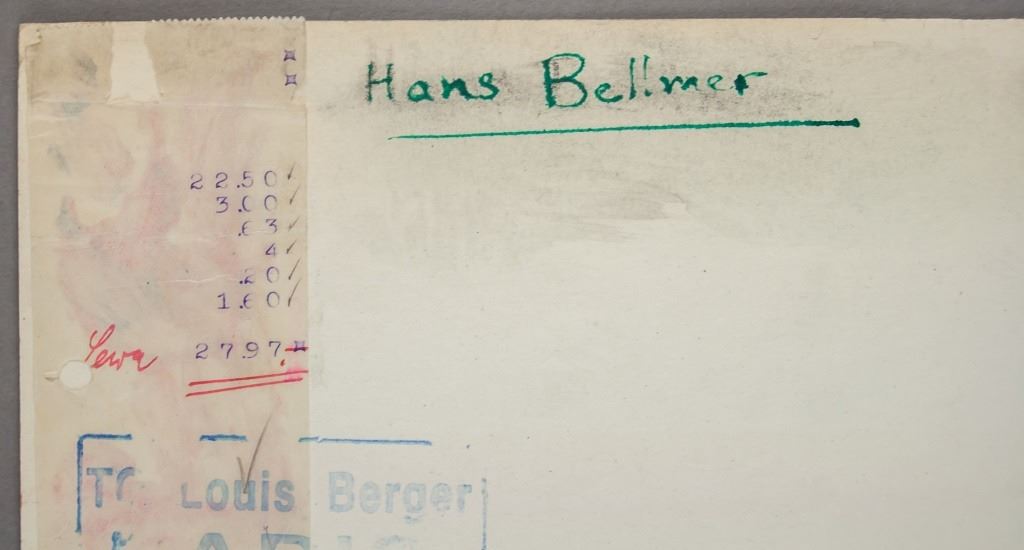 Hans Bellmer
22.50
3.00
.63
4
.20
1.60
27.97
Louis Berger